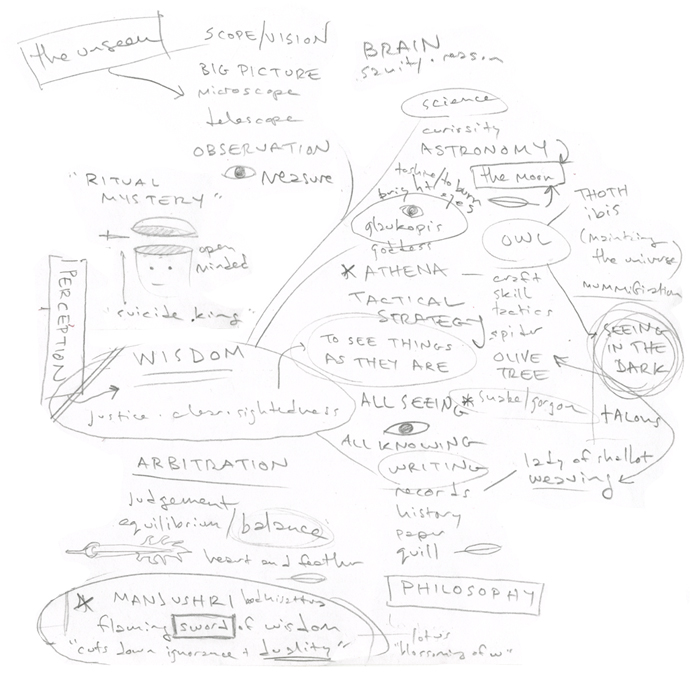 the unseen
SCOPE/VISION
BIG PICTURE
microscope
telescope
OBSERVATION
measure
BRAIN
sanity. reason
science
curiosity
ASTRONOMY
the moon
to shine/to burn
bright eyes
glaukopis
goddess
OWL
THOTH
ibis
(maintaining
the universe)
MUMMIFICATION
"RITUAL
MYSTERY"
open
minded
"suicide king"
PERCEPTION
* ATHENA
craft
skill
tactics
TACTICAL
STRATEGY
spider
OLIVE
TREE
SEEING
IN THE
DARK
WISDOM
justice. clear. sightedness
TO SEE THINGS
AS THEY ARE
ALL SEEING
* snake/gorgon
talons
ALL KNOWING
WRITING
records
history
paper
quill
lady of shallot
weaving
ARBITRATION
judgement
equilibrium/balance
heart and feather
* MANJUSHRI bodhisattva
flaming sword of wisdom
"cuts down ignorance + duality"
PHILOSOPHY
lotus
"blossoming of w"